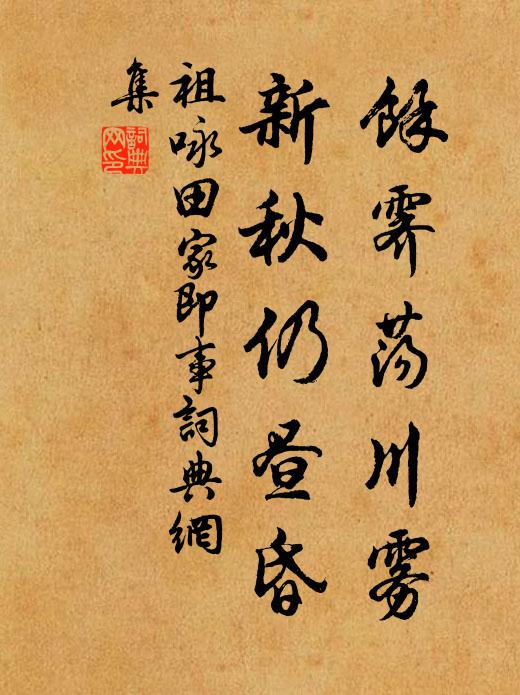 餘霽蕩川霧
新秋仍晝昏
祖咏田家即事詞典網
集
詞典網印